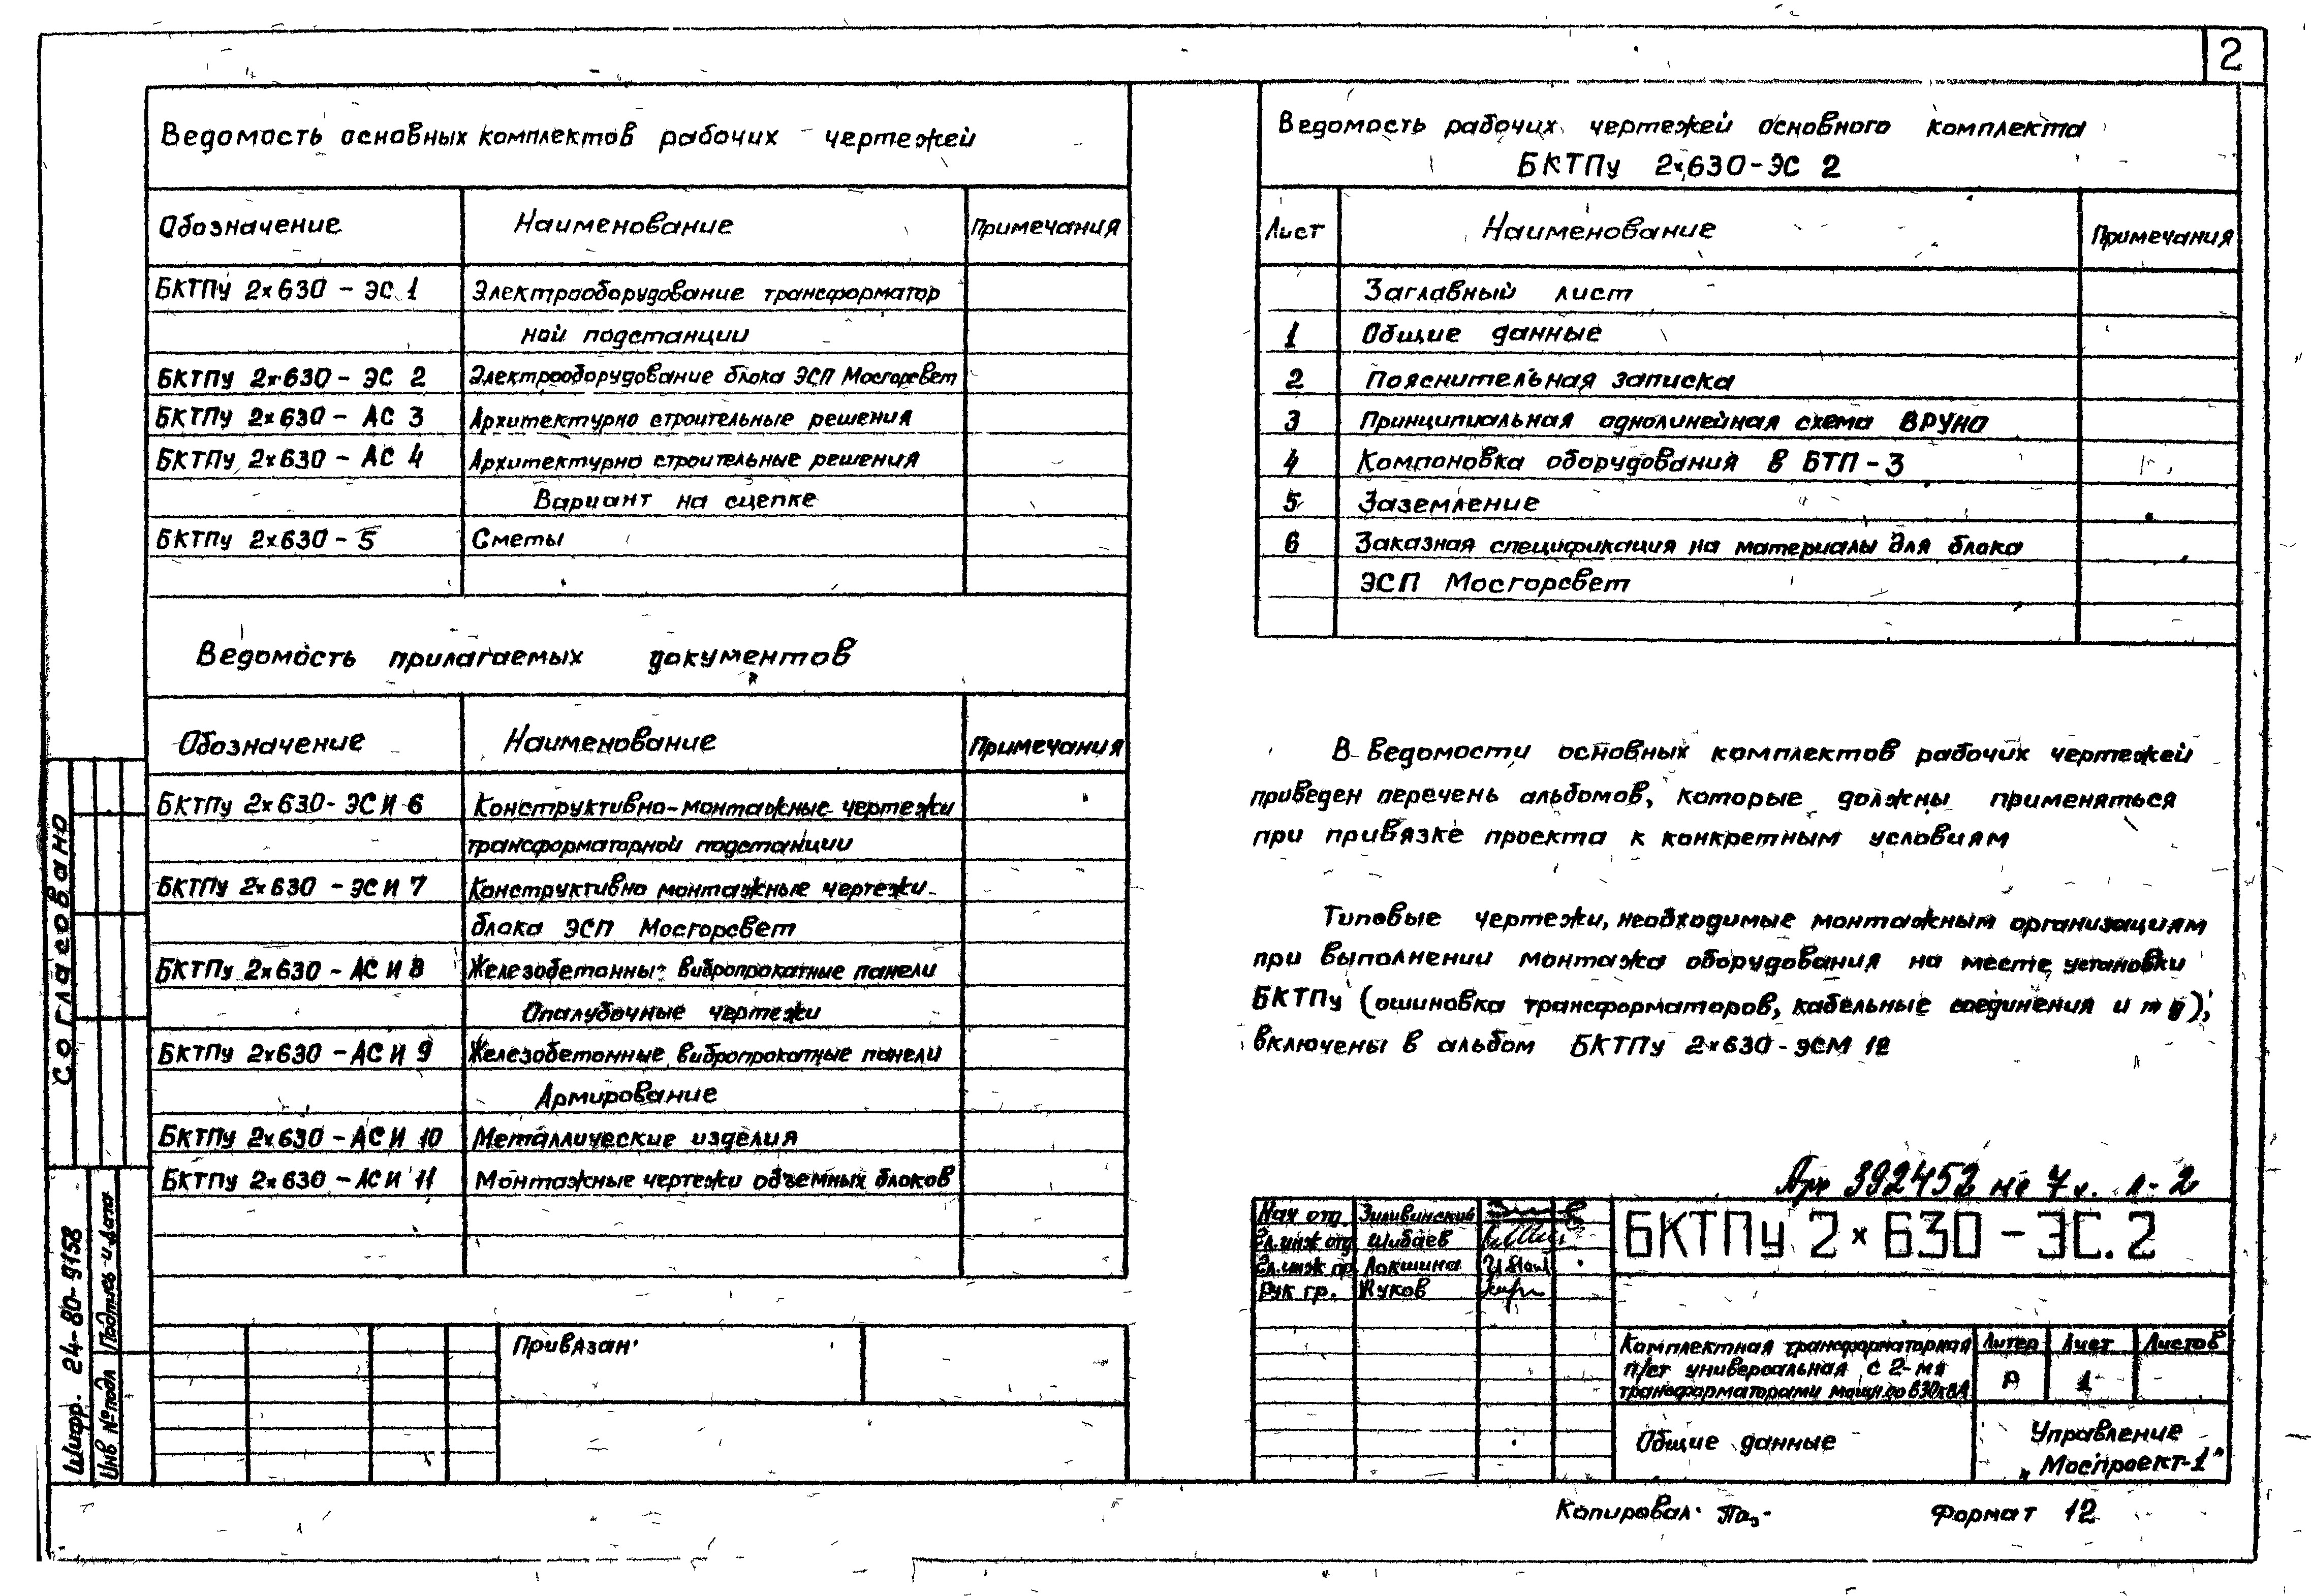 2
Ведомость основных комплектов рабочих чертежей
Обозначение Наименование Примечания
БКТПу 2×630 - ЭС 1 Электрооборудование трансформатор
ной подстанции
БКТПу 2×630 - ЭС 2 Электрооборудование блока ЭСП Мосгорсвет
БКТПу 2×630 - АС 3 Архитектурно строительные решения
БКТПу 2×630 - АС 4 Архитектурно строительные решения
Вариант на сцепке
БКТПу 2×630 - 5 Сметы
Ведомость прилагаемых документов
Обозначение Наименование Примечания
БКТПу 2×630 - ЭСИ 6 Конструктивно-монтажные чертежи
трансформаторной подстанции
БКТПу 2×630 - ЭСИ 7 Конструктивно монтажные чертежи
блока ЭСП Мосгорсвет
БКТПу 2×630 - АСИ 8 Железобетонные вибропрокатные панели
Опалубочные чертежи
БКТПу 2×630 - АСИ 9 Железобетонные вибропрокатные панели
Армирование
БКТПу 2×630 - АСИ 10 Металлические изделия
БКТПу 2×630 - АСИ 11 Монтажные чертежи объемных блоков
Привязан
Согласовано
Шифр. 24-80-9158
Инв № подл Подпись и дата
Ведомость рабочих чертежей основного комплекта
БКТПу 2×630 - ЭС 2
Лист Наименование Примечания
Заглавный лист
1 Общие данные
2 Пояснительная записка
3 Принципиальная однолинейная схема ВРУНО
4 Компоновка оборудования в БТП - 3
5 Заземление
6 Заказная спецификация на материалы для блока
ЭСП Мосгорсвет
В ведомости основных комплектов рабочих чертежей
приведен перечень альбомов, которые должны применяться
при привязке проекта к конкретным условиям
Типовые чертежи, необходимые монтажным организациям
при выполнении монтажа оборудования на месте установки
БКТПу (ошиновка трансформаторов, кабельные соединения и т д),
включены в альбом БКТПу 2×630 - ЭСМ 12
Арх 392452 на 7 л. л - 2
Нач отд Зиливинский
Гл.инж отд Шибаев
Гл.инж пр Локшина
Рук гр. Жуков
БКТПу 2×630 - ЭС.2
Комплектная трансформаторная
п/ст универсальная с 2-мя
трансформаторами мощн.по 630кВА
Литер Лист Листов
Р 1
Общие данные
Управление
„Моспроект-1"
Копировал
Формат 12